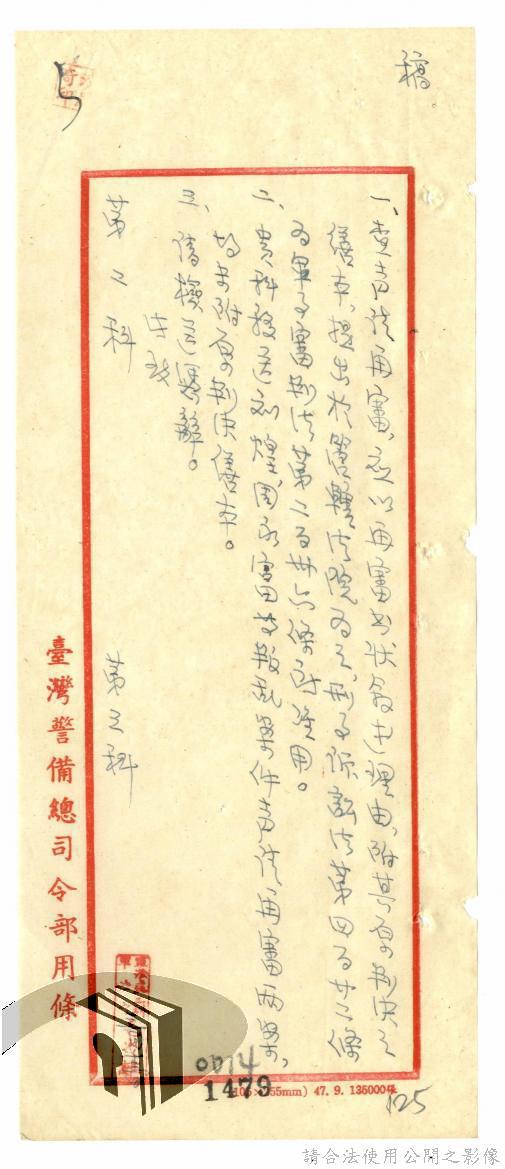 稿
一、查声請再審，应以再審书状敘述理由，附其原判決之
繕本，提出於管轄法院為之，刑事訴訟法第四百廿二條
为軍事審判法第二百卅六條所准用。
二、貴科移送 煌、周永富等叛乱案件声請再審兩案，
均未附原判決繕本。
三、請 还 辦。
此致
第二科
第三科
臺灣警備總司令部用條
0014
1479
55mm) 47. 9. 135000
125
請合法使用公開之影像